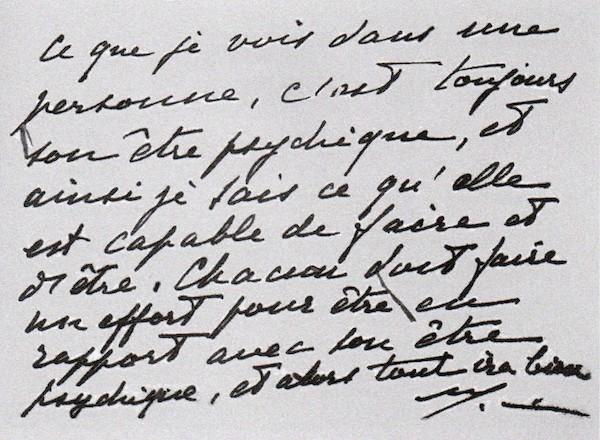 ce que je vois dans une
personne, c'est toujours
son être psychique, et
ainsi je sais ce qu'elle
est capable de faire et
d'être. Chacun doit faire
un effort pour être en
rapport avec son être
psychique, et alors tout ira bien